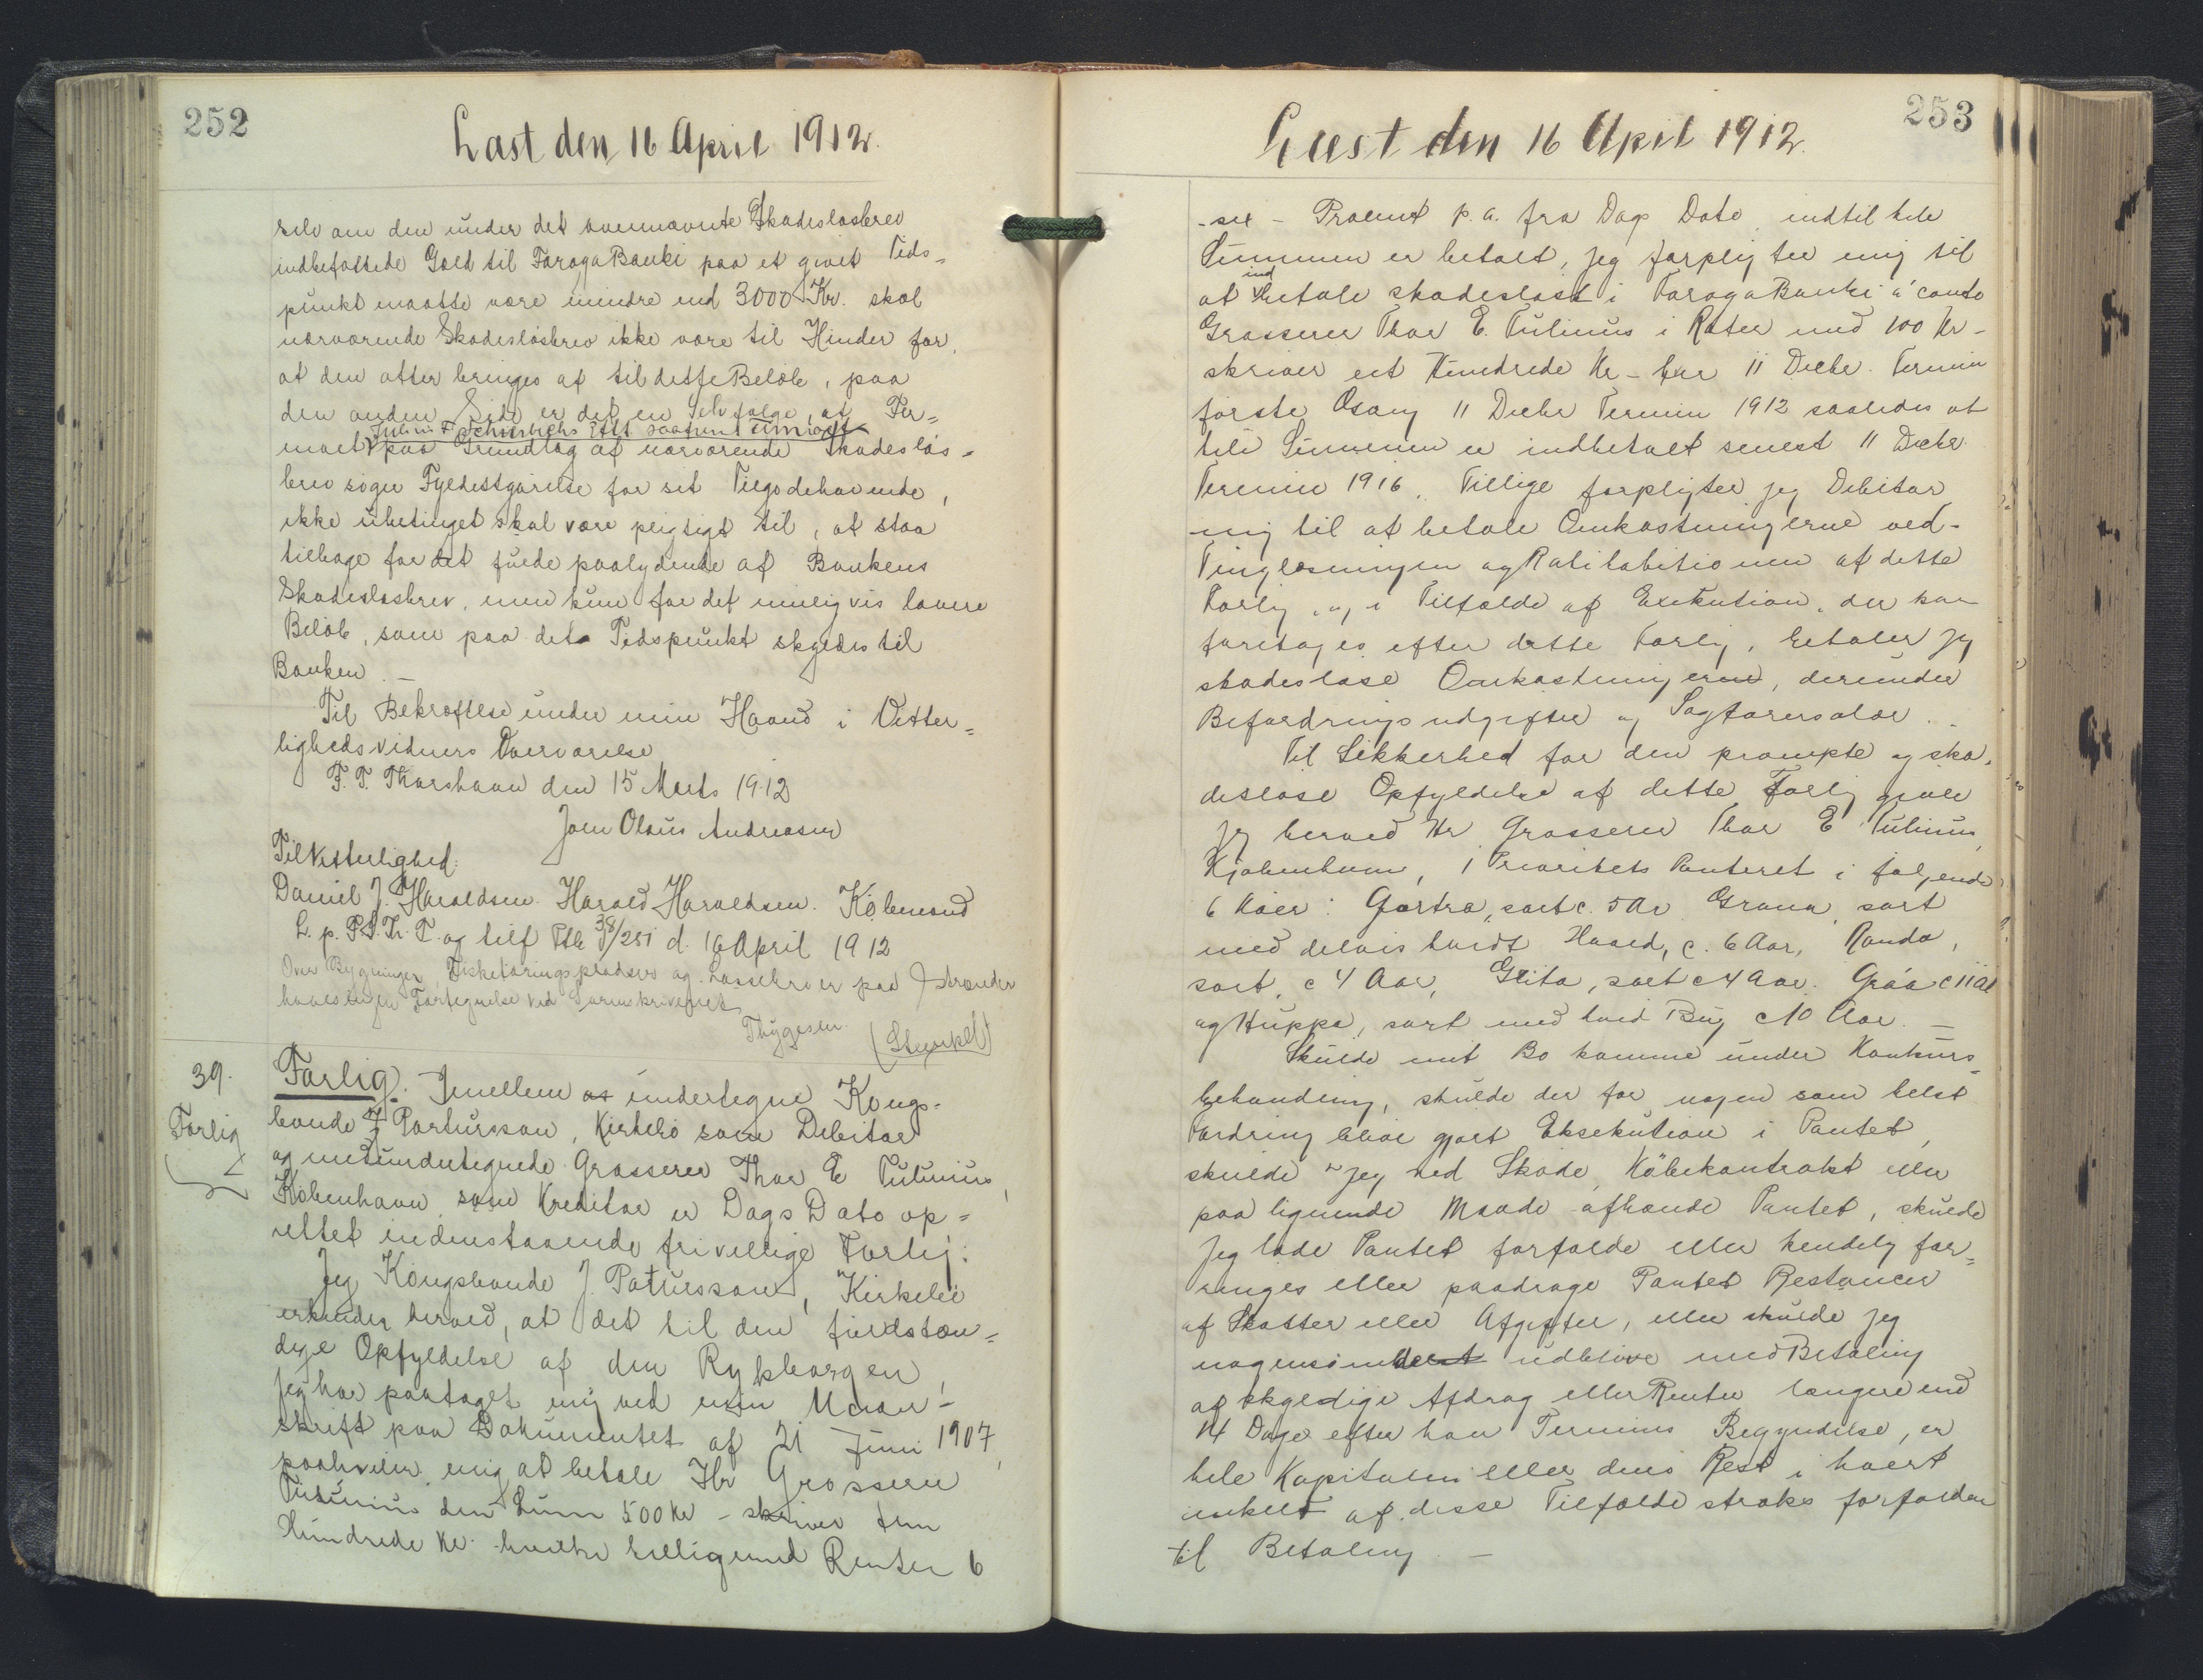 252
Læst den 16 April 1912.
selv om den under det ovennævnte Skadesløsbrev
indbefattede Gæld til Føroya Banki paa et givet Tids=
punkt maatte være mindre end 3000 Kr. skal
nærværende Skadesløsbrev ikke være til Hinder for,
at den atter bringes op til dette Beløb, paa
den anden Side er det en Selvfølge, at Fir=
Julius F. Schierbecks Eftf. saafremt
maet paa Grundlag af nærværende Skadesløs=
brev søger Fyldestgørelse for sit Tilgodehavende,
ikke ubetinget skal være pligtigt til, at staa
tilbage for det fulde paalydende af Bankens
Skadesløsbrev, men kun for det muligvis lavere
Beløb, som paa dette Tidspunkt skyldes til
Banken. —
Til Bekræftelse under min Haand i Vitter=
lighedsvidners Overværelse
F. T. Thorshavn den 15 Marts 1912
Joen Olaus Andreasen
Til Vitterlighed:
Daniel J. Haraldsen. Harald Haraldsen. Købmand
L. p. P.S. Th. T. og tilf Ptb 38/251 d. 16 April 1912
Over Bygninger, Fisketørringspladser og Lossebroer paa Strænder
haves ingen Fortegnelse ved Sorenskriveriet
Thygesen
(Stempel)
39.
Forlig
Forlig. Imellem os undertegne Kongs=
bonde J Patursson, Kirkebø som Debitor
og medundertegnede Grosserer Thor E Tulinius,
København som Kreditor er Dags Dato op=
rettet indenstaaende frivillige Forlig:
Jeg Kongsbonde J. Patursson, Kirkebø
erkender herved, at det til den fuldstæn=
dige Opfyldelse af den
jeg har paataget mig ved min Under-
skrift paa Dokumentet af 21 Juni 1907,
paahviler mig at betale Hr Grosserer
Tulinius den Sum 500 Kr - skriver fem
Hundrede Kr. hvilke tilligemed Renter 6
253
Læst den 16 April 1912.
- sex - Procent p. a. fra Dags Dato indtil hele
Summen er betalt, jeg forpligter mig til
ind
at betale skadesløst i Føroya Banki a' conto
Grosserer Thor E. Tulinius i Rater med 100 Kr -
skriver et Hundrede Kr - hver 11 Decbr. Termin
første Gang 11 Decbr Termin 1912 saaledes at
hele Summen er indbetalt senest 11 Decbr.
Termin 1916. Tillige forpligter jeg Debitor
mig til at betale Omkostningerne ved-
Tinglæsningen og Ratihabitionen af dette
Forlig, og i Tilfælde af Exekution, der kan
foretages efter dette Forlig, betaler jeg
skadesløse Omkostningerne, derunder
Befordringsudgifter og Sagførersalær. -
Til Sikkerhed for den prompte og ska=
desløse Opfyldelse af dette Forlig giver
jeg herved Hr Grosserer Thor E Tulinius,
Kjøbenhavn, 1 Prioritets Panteret i følgende
6 Køer: Gortra, sort c. 5 Ar Grana, sort
med delvis hvidt Hoved, c. 6 Aar, Randa,
sort, c 4 Aar, Glita, sort c 4 Aar. Gráa c 11 Ar
og Huppa, sort med hvid Bug c 10 Aar. —
Skulde mit Bo komme under Konkurs=
behandling, skulde der for nogen som helst
Fordring blive gjort Eksekution i Pantet,
skulde jeg ved Skøde, Købekontrakt eller
paa lignende Maade afhænde Pantet, skulde
jeg lade Pantet forfalde eller kendelig for=
ringes eller paadrage Pantet Restancer
af Skatter eller Afgifter, eller skulde jeg
nogensomhelst udblive med Betaling
af skyldige Afdrag eller Renter længere end
14 Dage efter hver Termins Begyndelse, er
hele Kapitalen eller dens Rest i hvert
enkelt af disse Tilfælde straks forfalden
til Betaling. —